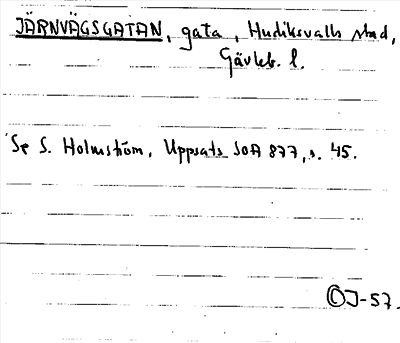 JÄRNVÄGSGATAN, gata, Hudiksvalls stad,
Gävleb. l.
Se S. Holmström, Uppsats SOA 877, s. 45.
ⒸJ-57.